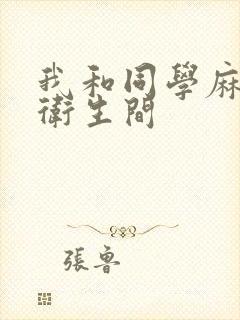 我和同學麻
衛生間
張魯